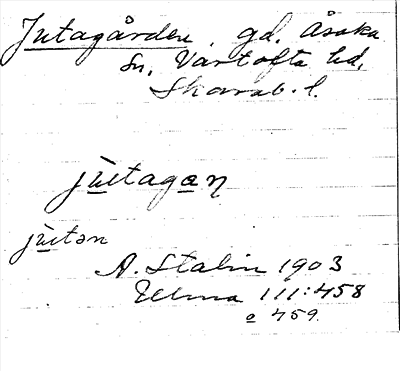 Jutagården, gd, Åsaka
sn, Vartofta hd,
Skarab. l.
jùtagan
jùtən
A. Stalin 1903
Ulma 111:458
o 459.